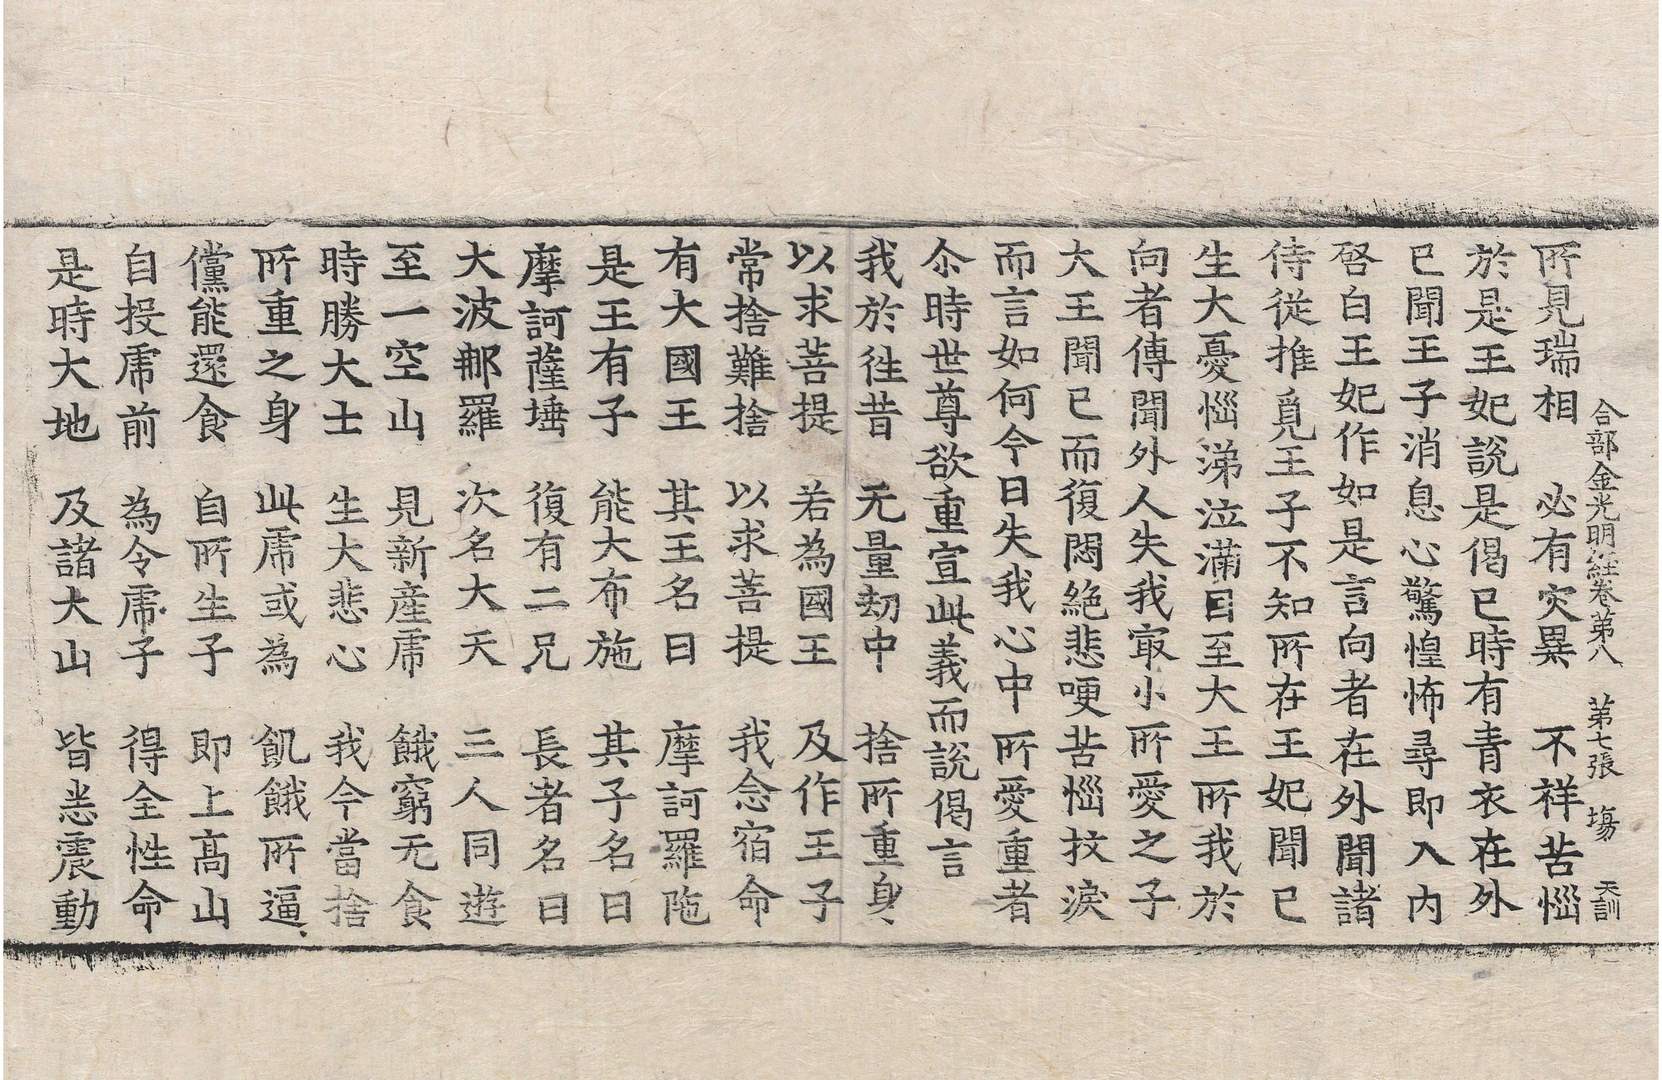 合部金光明経卷第八　第七張　塲　天訓
所見瑞相　必有灾異　不祥苦惱
於是王妃說是偈已時有青衣在外
已聞王子消息心驚惶怖尋即入內
啓白王妃作如是言向者在外聞諸
侍從推覓王子不知所在王妃聞已
生大憂惱涕泣滿目至大王所我於
向者傳聞外人失我㝡小所愛之子
大王聞已而復悶絕悲哽苦惱抆淚
而言如何今日失我心中所愛重者
尒時世尊欲重宣此義而說偈言
我於往昔　无量劫中　捨所重身
以求菩提　若為國王　及作王子
常捨難捨　以求菩提　我念宿命
有大國王　其王名曰　摩訶羅陁
是王有子　能大布施　其子名曰
摩訶薩埵　復有二兄　長者名曰
大波那羅　次名大天　三人同遊
至一空山　見新産虎　餓窮无食
時勝大士　生大悲心　我今當捨
所重之身　此虎或為　飢餓所逼
儻能還食　自所生子　即上高山
自投虎前　為令虎子　得全性命
是時大地　及諸大山　皆悉震動